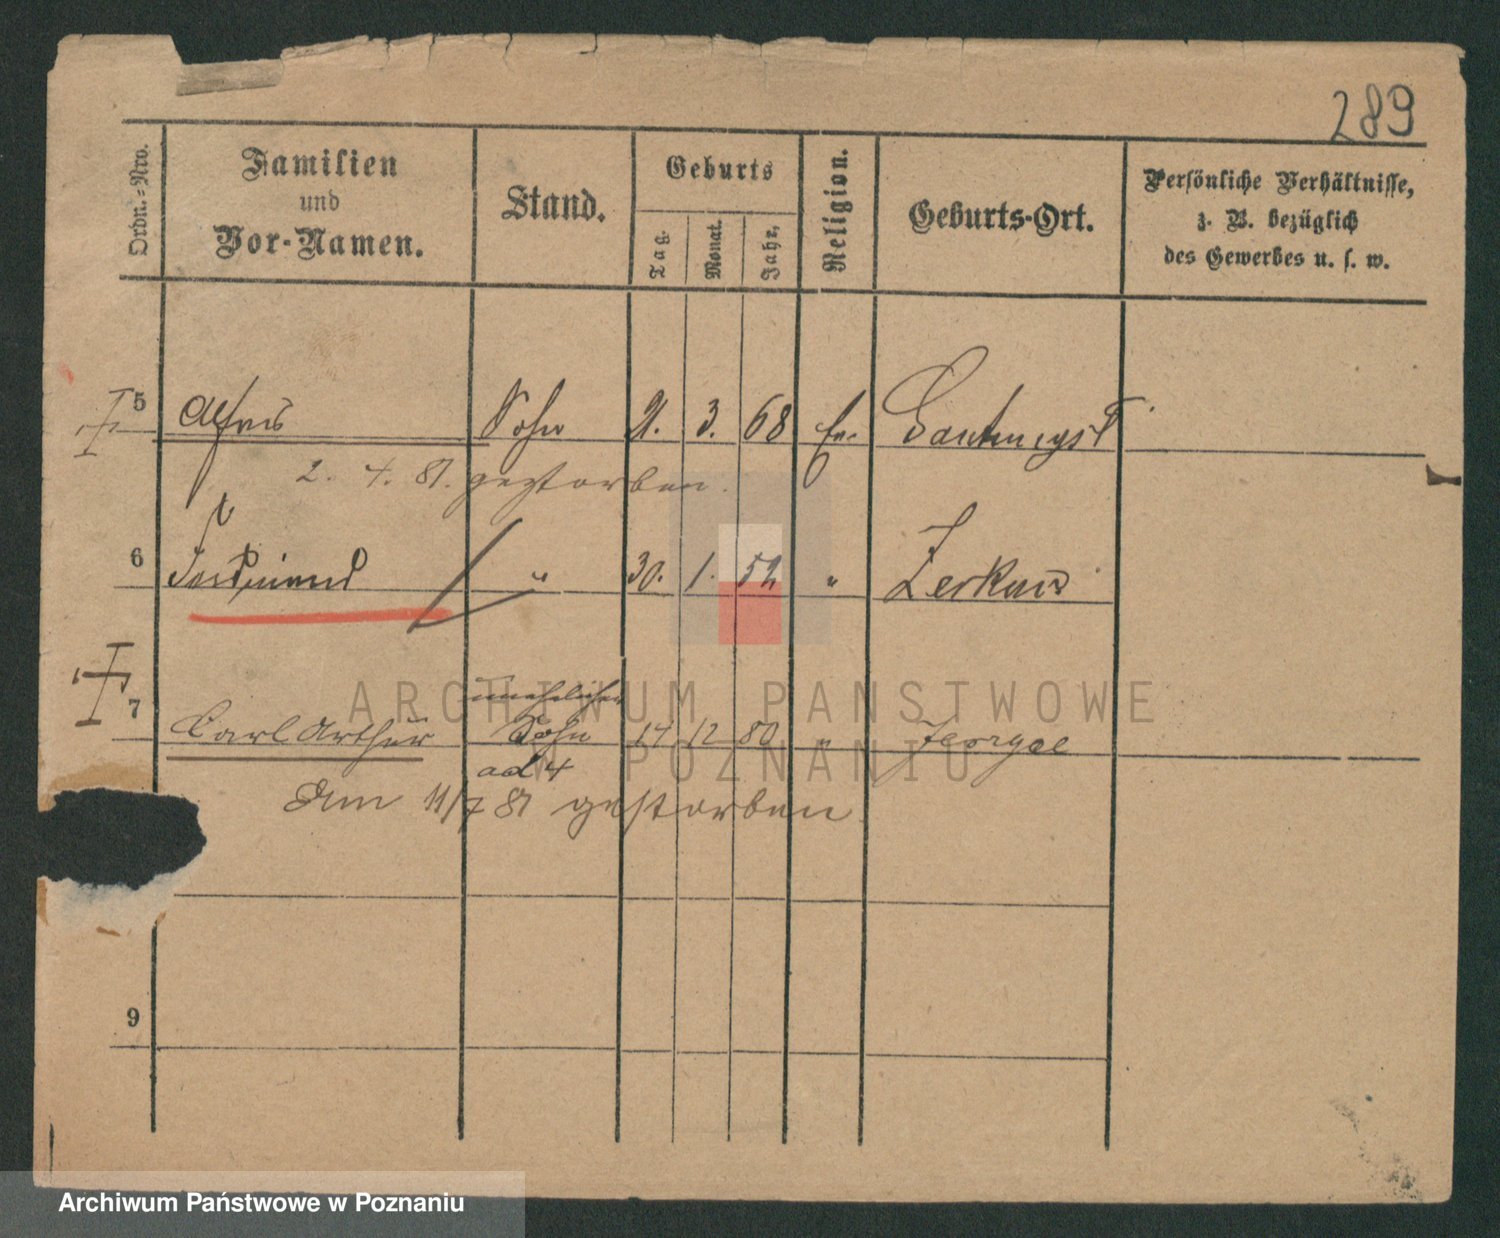 289
Ordn.-Nro.
Familien
und
Vor-Namen.
Stand.
Geburts
Tag.
Monat.
Jahr.
Religion.
Geburts-Ort.
Persönliche Verhältnisse,
z. B. bezüglich
des Gewerbes u. s. w.
5 Alfred Sohn 21. 3. 68 ev.
2. 4. 81. gestorben.
6 Ferdinand " 30. 1. 52 " Zerkow
unehelicher
7 Carl Arthur Sohn 14 12 80 "
ad 4
Am 11/7 81 gestorben.
9
ARCHIWUM PAŃSTWOWE
W POZNANIU
Archiwum Państwowe w Poznaniu